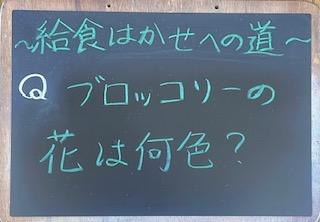 ～給食はかせへの道～
Q ブロッコリーの
花は何色？